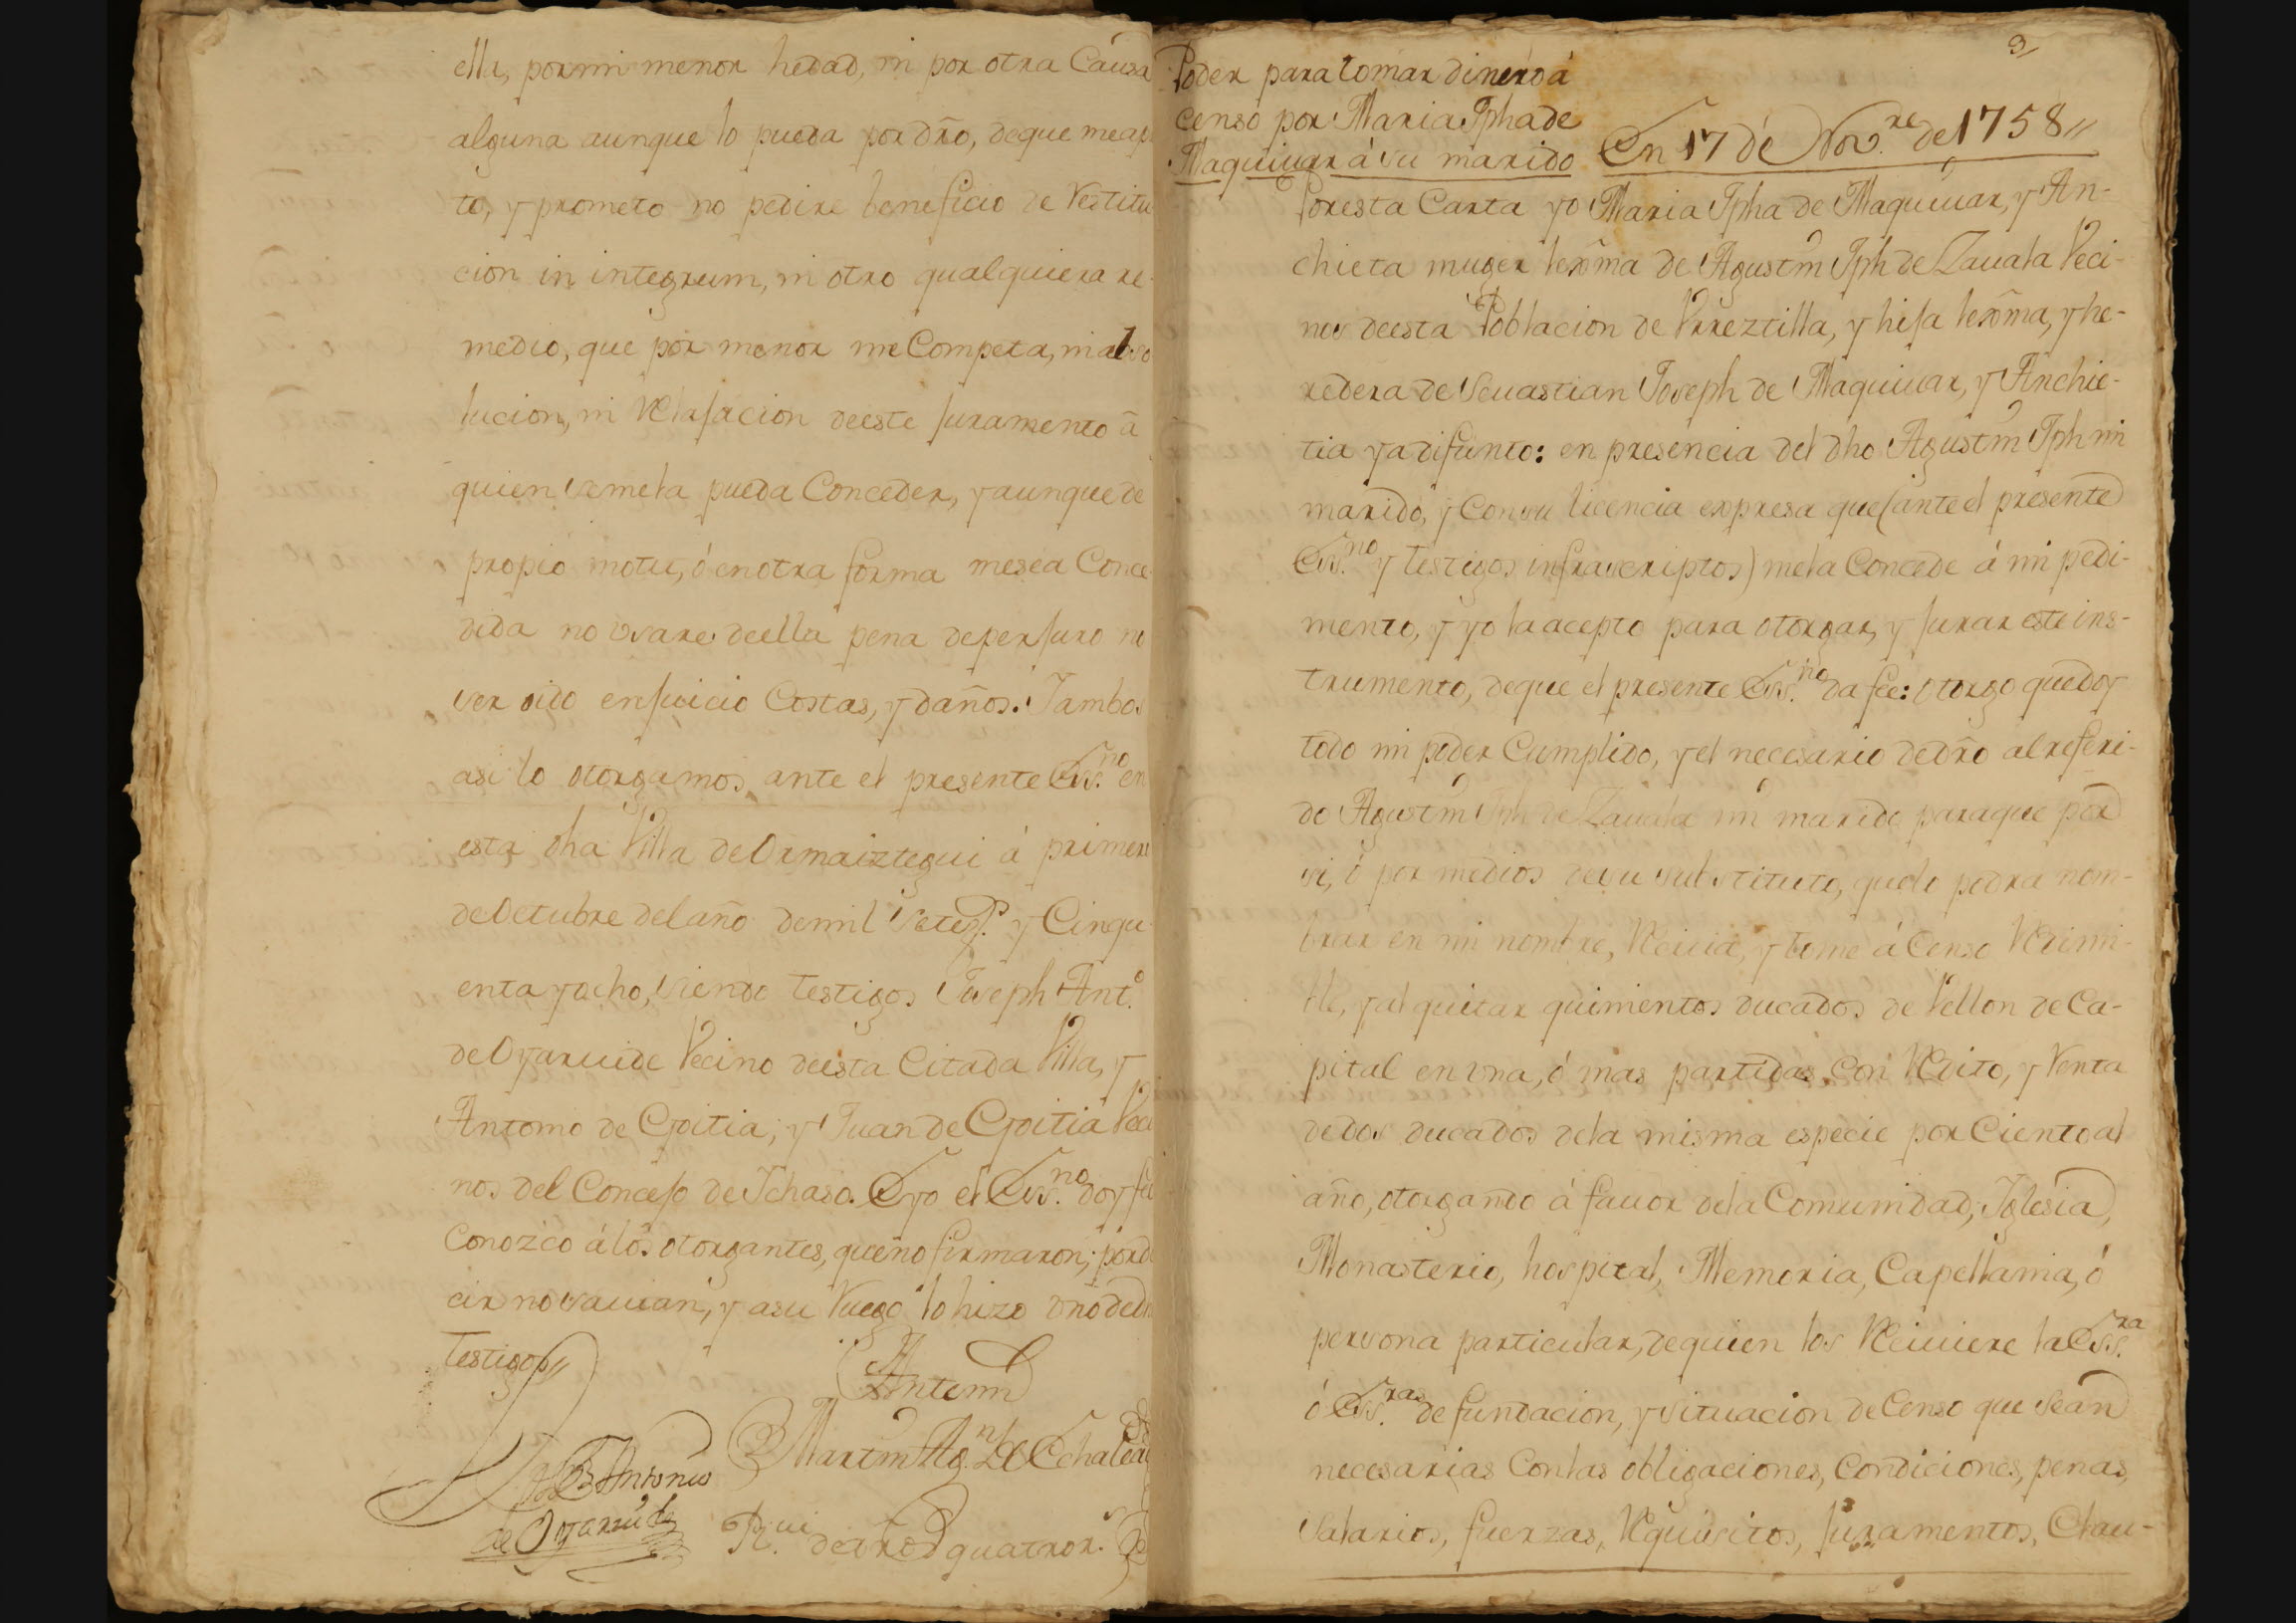 ella, por mi menor hedad, ni por otra Causa
alguna aunque lo pueda por dr̃o, deque me ap
to, y prometo no pedire beneficio de Restitu
cion in integrum, ni otro qualquiera re-
medio, que por menor me Competa, ni abso
lucion, ni Relajacion deeste juramento â
quien seme la pueda Conceder, y aunque de
propio motu, ó en otra forma mesea Conce
dida no vsare deella pena deperjuro no
ser oido en juicio Costas, y daños. Jambos
asi lo otorgamos ante el presente Ess.no en
esta dha Villa de Ormaiztegui á primero
de Octubre del año demil Setes. y Cinqu
enta y ocho, siendo testigos Joseph Ant.o
de Oyaruide Vecino deesta Citada Villa, y
Antonio de Goitia, y Juan de Goitia Veci
nos del Concejo de Ichaso. E yo el Ess.no doy fe
Conozco á los otorgantes, que no firmaron, por de
cir no sauian, y asu Ruego lo hizo vno dedh
testigos//
Antemi
Martin Ag.n de Echalea
Jos Antonio
de Oyaruide
R.ui quatro r.
9
Poder para tomar dinero á
censo por Maria Jpha de
Maquiuar á su marido
En 17 de Nov.re de 1758//
Poresta Carta yo Maria Jpha de Maquiuar, y An-
chieta muger lexma de Agustin Jph de Zauala Veci-
nos deesta Poblacion de Vrreztilla, y hija lexma, y he-
redera de Seuastian Joseph de Maquiuar, y Anchie-
tia ya difunto: en presencia del dho Agustin Jph mi
marido, y Con su licencia expresa que (ante el presente
Ess.no y testigos infrascriptos) mela Concede á mi pedi-
mento, y yo la acepto para otorgar, y jurar este ins-
trumento, deque el presente Ess.no da fee: otorgo que doy
todo mi poder Cumplido, y el necesario de dr̃o al referi-
do Agustin Jph de Zauala mi marido paraque por
si, ó por medios desu substituto, quelo podra nom-
brar en mi nombre, Reciua, y tome á Censo Redimi-
ble, y al quitar quinientos ducados de Vellon de Ca-
pital en vna, ó mas partidas, Con Redito, y Renta
dedos ducados dela misma especie por Ciento al
año, otorgando á fauor dela Comunidad, Iglesia,
Monasterio, hospital, Memoria, Capellania, ó
persona particular, dequien los Reciuiere la Ess.ra
ó Ess.ras de fundacion, y situacion de Censo que sean
necesarias Con las obligaciones, Condiciones, penas,
salarios, fuerzas, Requisitos, juramentos, Clau-